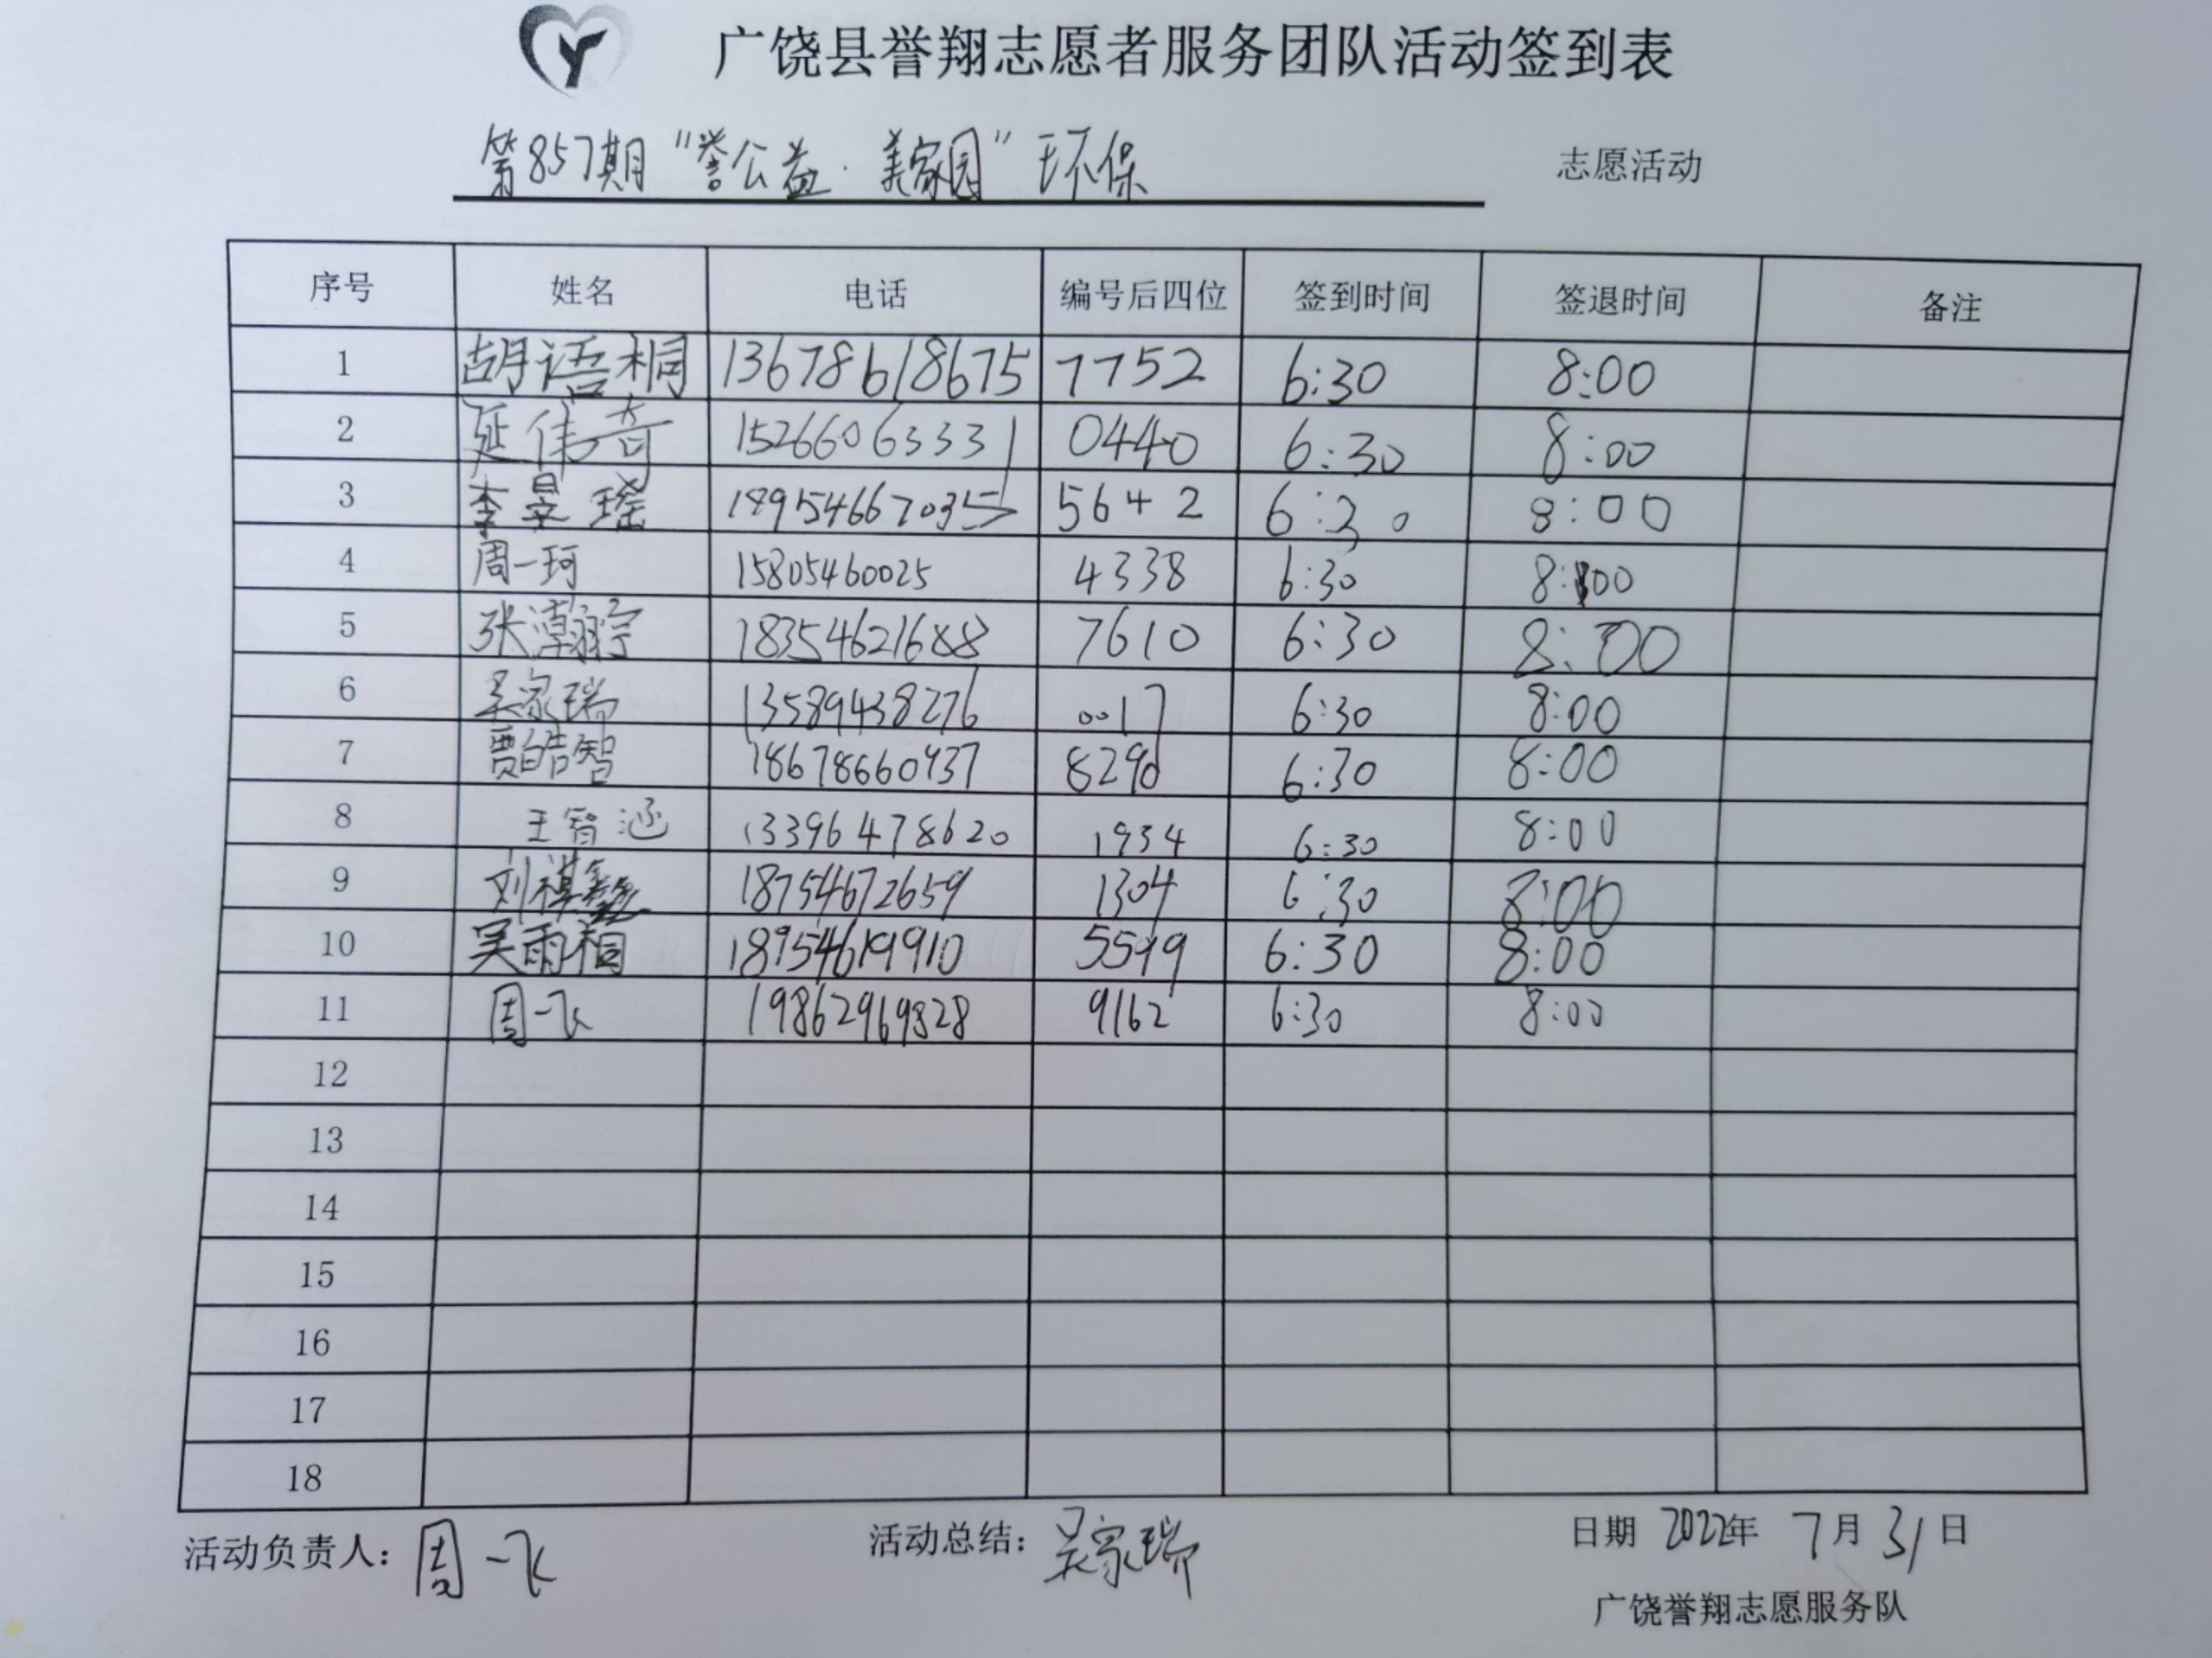 广饶县誉翔志愿者服务团队活动签到表
第857期“誉公益·美家园”环保 志愿活动
序号 姓名 电话 编号后四位 签到时间 签退时间 备注
1 胡语桐 13678618675 7752 6:30 8:00
2 延伟奇 15266063331 0440 6:30 8:00
3 李昱瑶 18954667035 5642 6:30 8:00
4 周一珂 15805460025 4338 6:30 8:00
5 张瀚宇 18354621688 7610 6:30 8:00
6 吴家瑞 13589438276 0017 6:30 8:00
7 贾皓智 18678660937 8290 6:30 8:00
8 王智涵 13396478620 1934 6:30 8:00
9 刘祺 18754672659 1304 6:30 8:00
10 吴雨桐 18954619910 5599 6:30 8:00
11 周一飞 19862969828 9162 6:30 8:00
12
13
14
15
16
17
18
活动负责人：周一飞 活动总结：吴家瑞 日期 2022年 7月 31日
广饶誉翔志愿服务队